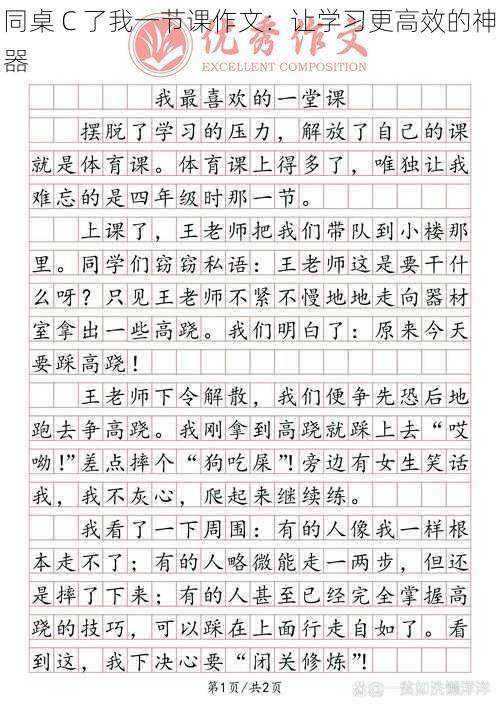 同桌 C 了我一节课作文：让学习更高效的神
器
优秀作文
EXCELLENT COMPOSITION
我最喜欢的一堂课
摆脱了学习的压力，解放了自己的课
就是体育课。体育课上得多了，唯独让我
难忘的是四年级时那一节。
上课了，王老师把我们带队到小楼那
里。同学们窃窃私语：王老师这是要干什
么呀？只见王老师不紧不慢地地走向器材
室拿出一些高跷。我们明白了：原来今天
要踩高跷！
王老师下令解散，我们便争先恐后地
跑去争高跷。我刚拿到高跷就踩上去“哎
呦！”差点摔个“狗吃屎”！旁边有女生笑话
我，我不灰心，爬起来继续练。
我看了一下周围：有的人像我一样根
本走不了；有的人略微能走一两步，但还
是摔了下来；有的人甚至已经完全掌握高
跷的技巧，可以踩在上面行走自如了。看
到这，我下决心要“闭关修炼”！
第1页/共2页